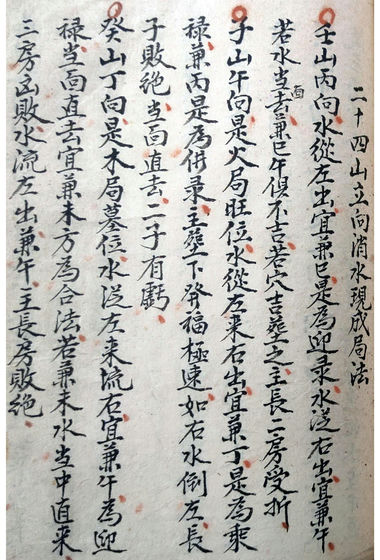 二十四山立向消水現成局法
壬山丙向水從左出宜兼巳是為迎彔水從右出宜兼午
若水当面去兼巳午俱不吉若穴吉塟之主長二房受折
子山午向是火局旺位水從左来右出宜兼丁是為乘
禄兼丙是為借彔主塟下發福極速如右水倒左長
子敗絶当面直去二子有虧
癸山丁向是木局墓位水從左来流右宜兼午為迎
禄当面直去宜兼未方為合法若兼未水当中直来
三房凶敗水流左出兼午主長房敗絶